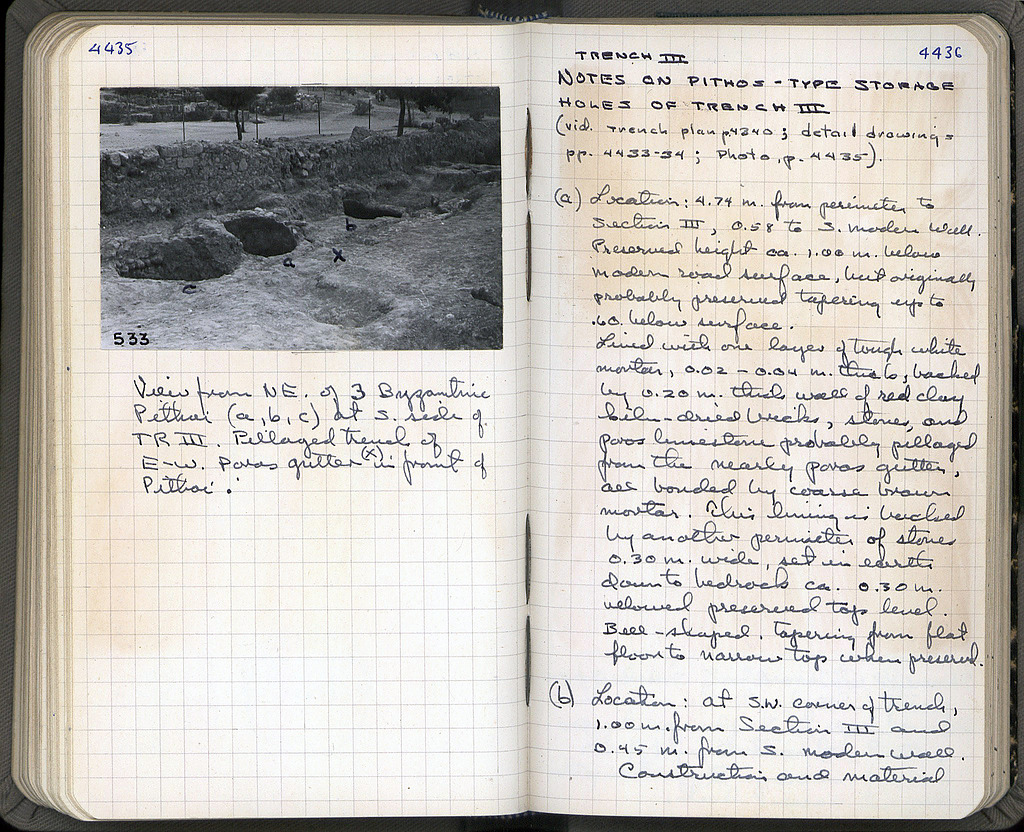 4435
b
a
x
c
533
View from NE. of 3 Byzantine
Pithoi (a, b, c) at S. side of
TR III. Pillaged trench of
E-W. Poros gutter (x) in front of
Pithoi.
4436
TRENCH III
NOTES ON PITHOS-TYPE STORAGE
HOLES OF TRENCH III
(vid. trench plan p.4240; detail drawings
pp. 4433-34; Photo, p. 4435).
(a) Location: 4.74 m. from perimeter to
Section III, 0.58 to S. modern wall.
Preserved height ca. 1.00 m. below
modern road surface, but originally
probably preserved tapering up to
.60 below surface.
Lined with one layer of tough white
mortar, 0.02 - 0.04 m. thick, backed
by 0.20 m. thick wall of red clay
kiln-dried bricks, stones, and
poros limestone probably pillaged
from the nearby poros gutter,
all bonded by coarse brown
mortar. This lining is backed
by another perimeter of stones
0.30 m. wide, set in earth
down to bedrock ca. 0.30 m.
below preserved top level.
Bell-shaped, tapering from flat
floor to narrow top when preserved.
(b) Location: at S.W. corner of trench,
1.00 m. from Section III and
0.45 m. from S. modern wall.
Construction and material